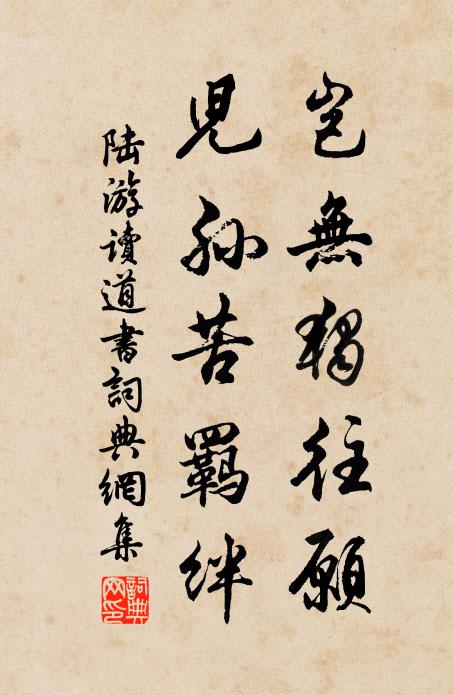 豈無獨往願
兒孫苦羈絆
陸游讀道書詞典網集
詞典
网印